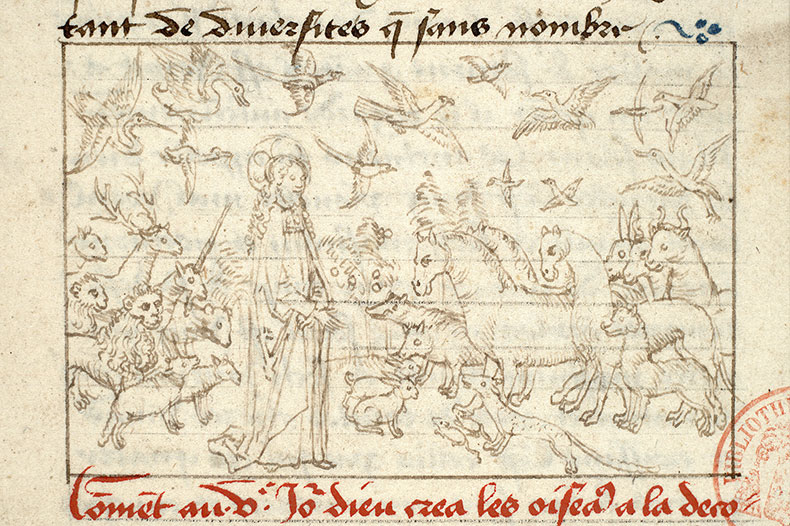 tant de diversites q̃ sans nombre
Com̃et au .vᵉ. Joʳ dieu crea les oisea a la deco
BIBLIOTH